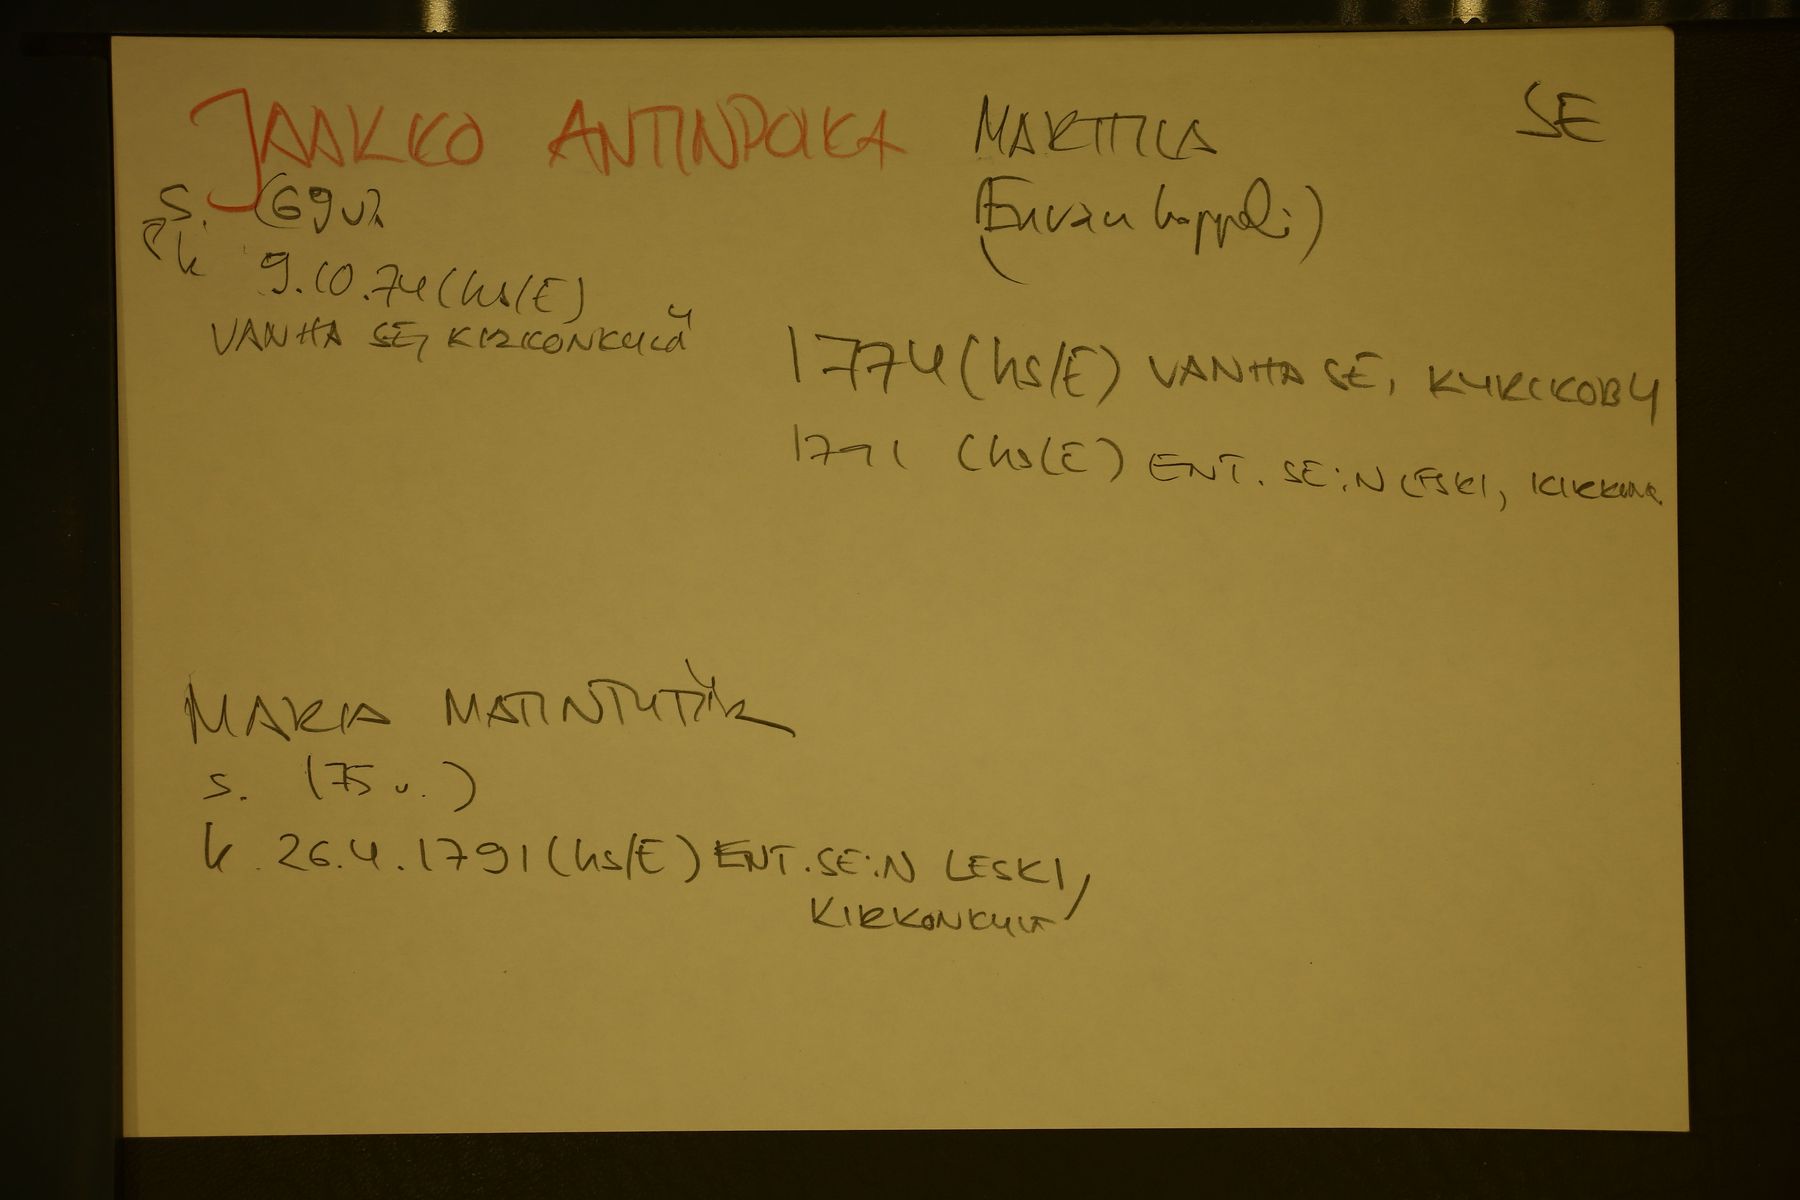 JAAKKO ANTINPOIKA MARTTILA SE
s. (69 v) (Euran kappeli)
k 9.10.74 (hs/E)
VANHA SE, KIRKONKYLÄ
1774 (hs/E) VANHA SE, KYRCKOBY
1791 (hs/E) ENT. SE:N LESKI,
MARIA MATINTYTÄR
s. (75 v.)
k. 26.4.1791 (hs/E) ENT. SE:N LESKI,
KIRKONKYLÄ